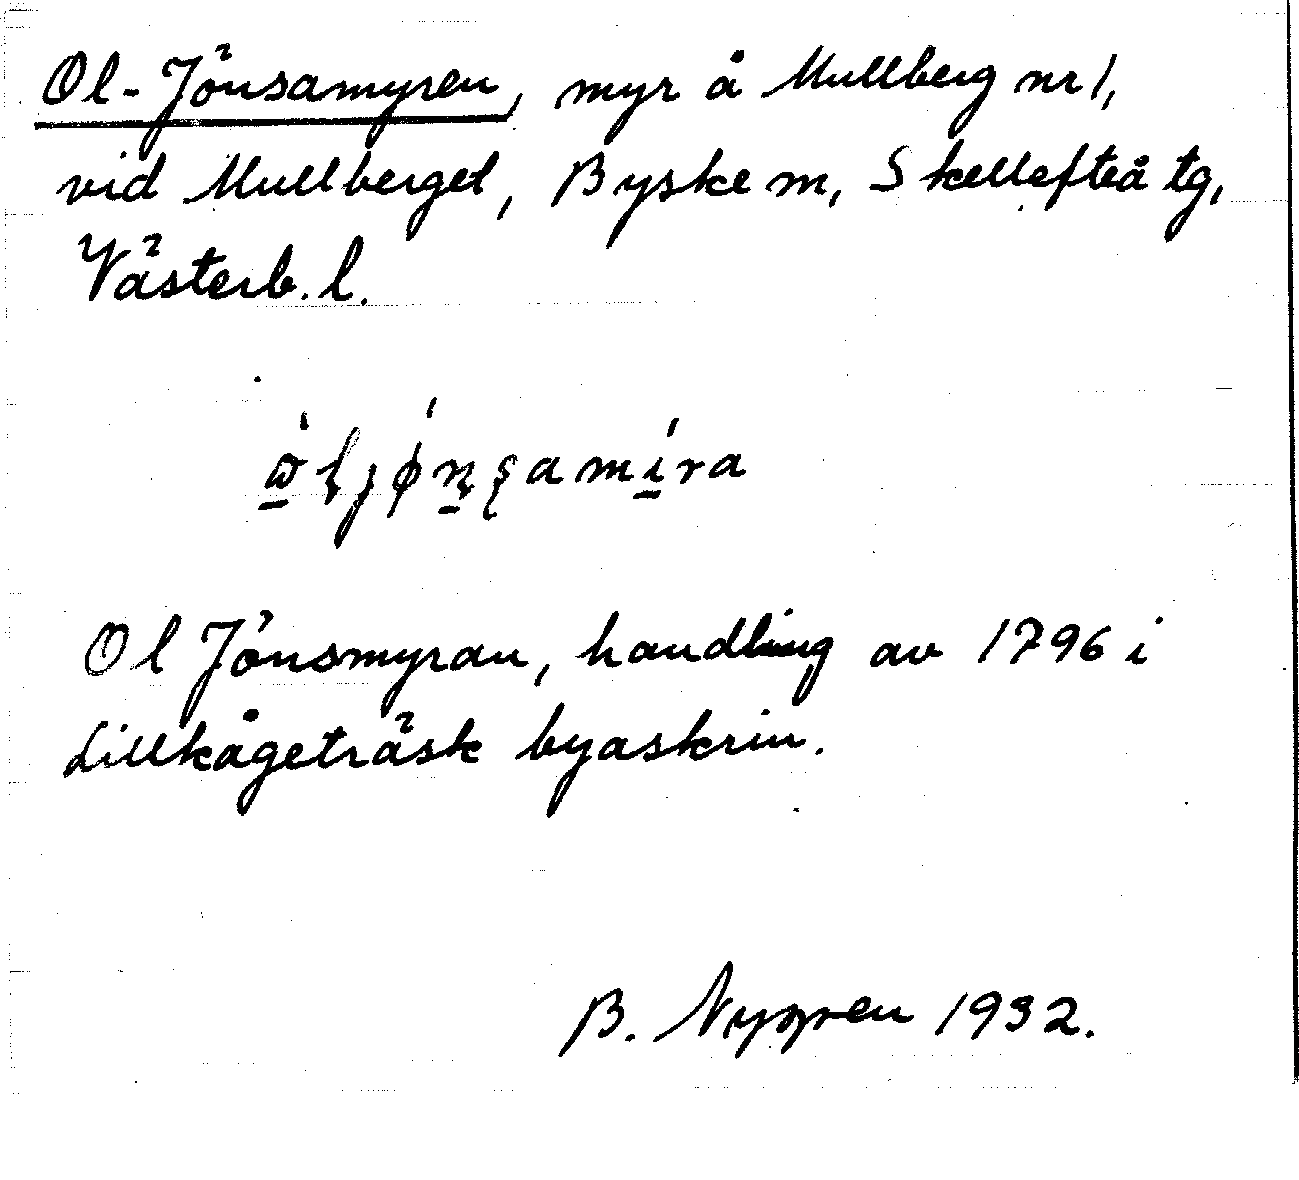 Ol-Jönsamyren, myr å Mullberg nr 1,
vid Mullberget, Byske sn, Skellefteå tg,
Västerb. l.
Ol Jönsmyran, handling av 1796 i
Lillkågeträsk byaskrin.
B. Nygren 1932.